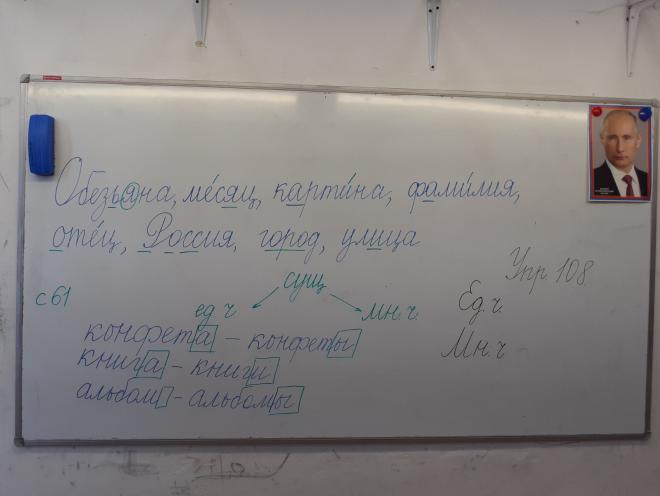 Обезьяна, ме́сяц, карти́на, фами́лия,
оте́ц, Россия, город, улица
Упр. 108
с 61
сущ
ед. ч
мн. ч.
Ед. ч.
Мн. ч
конфета – конфеты
книга – книги
альбом – альбомы